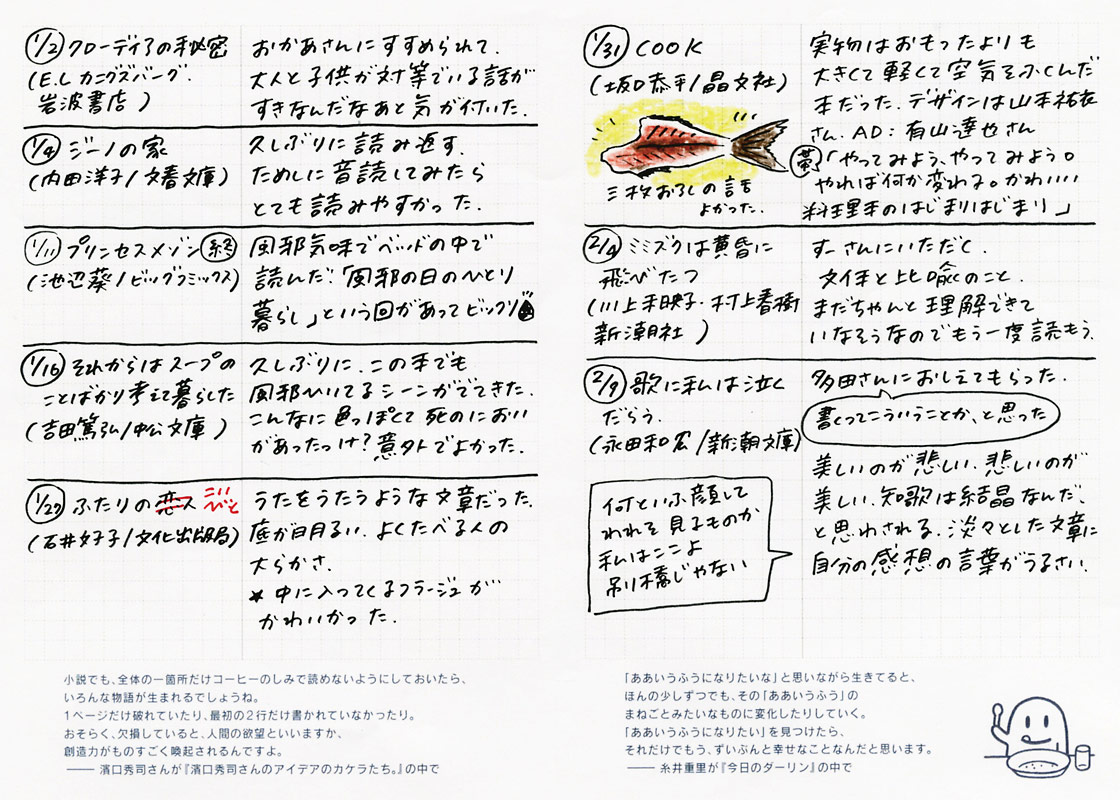 1/2 クローディアの秘密
(E.L カニグズバーグ.
岩波書店 )
おかあさんにすすめられて.
大人と子供が対等でいる話が
すきなんだなあと気が付いた.
1/4 ジーノの家
(内田洋子/文春文庫)
久しぶりに読み返す.
ためしに音読してみたら
とても読みやすかった.
1/11 プリンセスメゾン 終
(池辺葵/ビッグコミックス)
風邪気味でベッドの中で
読んだ.「風邪の日のひとり
暮らし」という回があってビックリ
1/16 それからはスープの
ことばかり考えて暮らした
(吉田篤弘/中公文庫)
久しぶりに. この本でも
風邪ひいてるシーンがでてきた.
こんなに色っぽくて死のにおい
があったっけ?意外でよかった.
1/27 ふたりの恋人 こいびと
(石井好子/文化出版局)
うたをうたうような文章だった.
底が明るい. よくたべる人の
大らかさ.
★ 中に入ってくるフラージュが
かわいかった.
小説でも、全体の一箇所だけコーヒーのしみで読めないようにしておいたら、
いろんな物語が生まれるでしょうね。
1ページだけ破れていたり、最初の2行だけ書かれていなかったり。
おそらく、欠損していると、人間の欲望といいますか、
創造力がものすごく喚起されるんですよ。
—— 濱口秀司さんが『濱口秀司さんのアイデアのカケラたち。』の中で
1/31 COOK
(坂口恭平/晶文社)
三枚おろしの話も
よかった.
実物はおもったよりも
大きくて軽くて空気をふくんだ
本だった. デザインは山本祐衣
さん. AD:有山達也さん
帯「やってみよう、やってみよう。
やれば何か変わる。かわいい
料理本のはじまりはじまり」
2/4 ミミズクは黄昏に
飛びたつ
(川上未映子. 村上春樹
新潮社 )
すーさんにいただく.
文体と比喩のこと.
まだちゃんと理解できて
いなそうなのでもう一度読もう.
2/9 歌に私は泣く
だらう.
(永田和宏/新潮文庫)
何といふ顔して
われを見るものか
私はここよ
吊り橋じゃない
多田さんにおしえてもらった.
書くってこういうことか、と思った
美しいのが悲しい. 悲しいのが
美しい. 短歌は結晶なんだ、
と思わされる. 淡々とした文章に
自分の感想の言葉がうるさい.
「ああいうふうになりたいな」と思いながら生きてると、
ほんの少しずつでも、その「ああいうふう」の
まねごとみたいなものに変化したりしていく。
「ああいうふうになりたい」を見つけたら、
それだけでもう、ずいぶんと幸せなことなんだと思います。
—— 糸井重里が『今日のダーリン』の中で